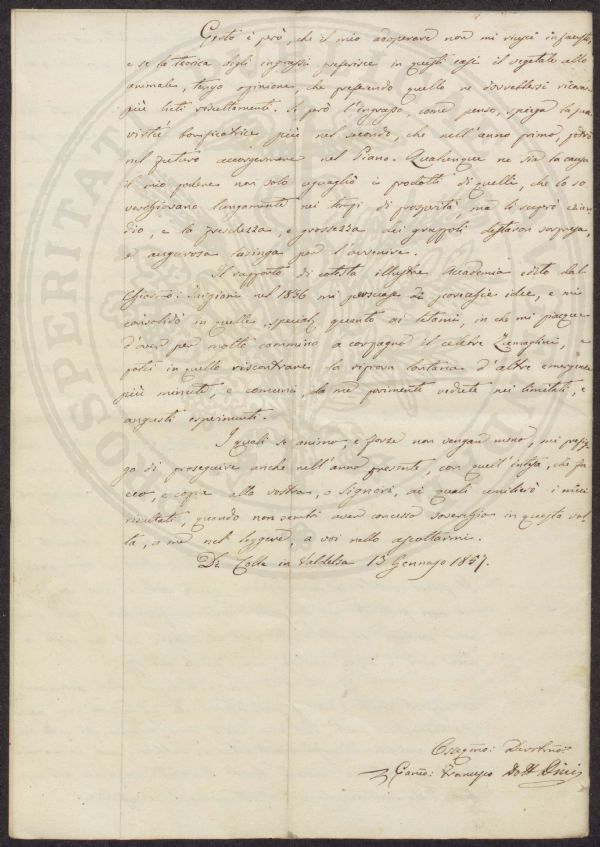 Certo è però, che il mio adoperare non mi riuscì infausto,
e se la teorica degli ingrassi preferisce in questi casi il vegetale allo
animale, tengo opinione, che preferendo quello ne dovrebbesi ricavare
più lieti resultamenti. Se però l'ingrasso, come penso, spiega la sua
virtù bonificatrice più nel secondo, che nell'anno primo, potrò
nel futuro accorgermene nel Piano. Qualunque ne sia la causa
il mio podere non solo eguagliò i prodotti di quelli, che lo so
verchiavano lungamente nei tempi di prosperità, ma li superò ezian
dio, e la freschezza, e grossezza dei grappoli destaron sorpresa,
ed augurosa lusinga per l'avvenire.
Il rapporto di cotesta illustre Accademia edito dal
nel 1856 mi persuase le idee, e mi
consolidò in quelle, quanto ai letami, in che mi piacque
d'aver per molti cammino a compagno il celebre
potei in quello riscontrare la riprova lontana d'altre emergenze
più minute, e comuni, da me parimente vedute nei limitati, e
angusti esperimenti.
I quali se animo, e forze non vengan meno, mi prefig
go di proseguire anche nell'anno presente, con quell'intesa, che
e copia alla vostra, o Signori, ai quali umilierò i miei
risultati, quando non sembri aver concesso soverchio in questa vol
ta, a me nel leggere, a voi nello ascoltarmi.
Di Colle in Valdelsa 15 Gennajo 1857.
Francesco Dott